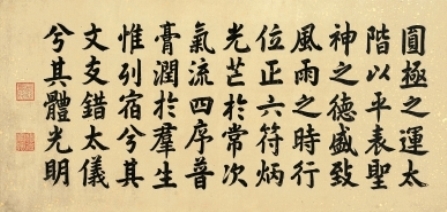 圓極之運太
階以平表聖
神之德盛致
風雨之時行
位正六符炳
光芒於常次
氣流四序普
膏潤於羣生
惟列宿兮其
文交錯太儀
兮其體光明